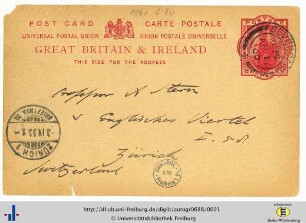 POST CARD CARTE POSTALE
UNIVERSAL POSTAL UNION UNION POSTALE UNIVERSELLE
GREAT BRITAIN & IRELAND
THIS SIDE FOR THE ADDRESS
Professor A Stern
Englisches Viertel
Zürich
Switzerland
ZÜRICH
http://dl.ub.uni-freiburg.de/diglit/autogr0688/0001
© Universitätsbibliothek Freiburg